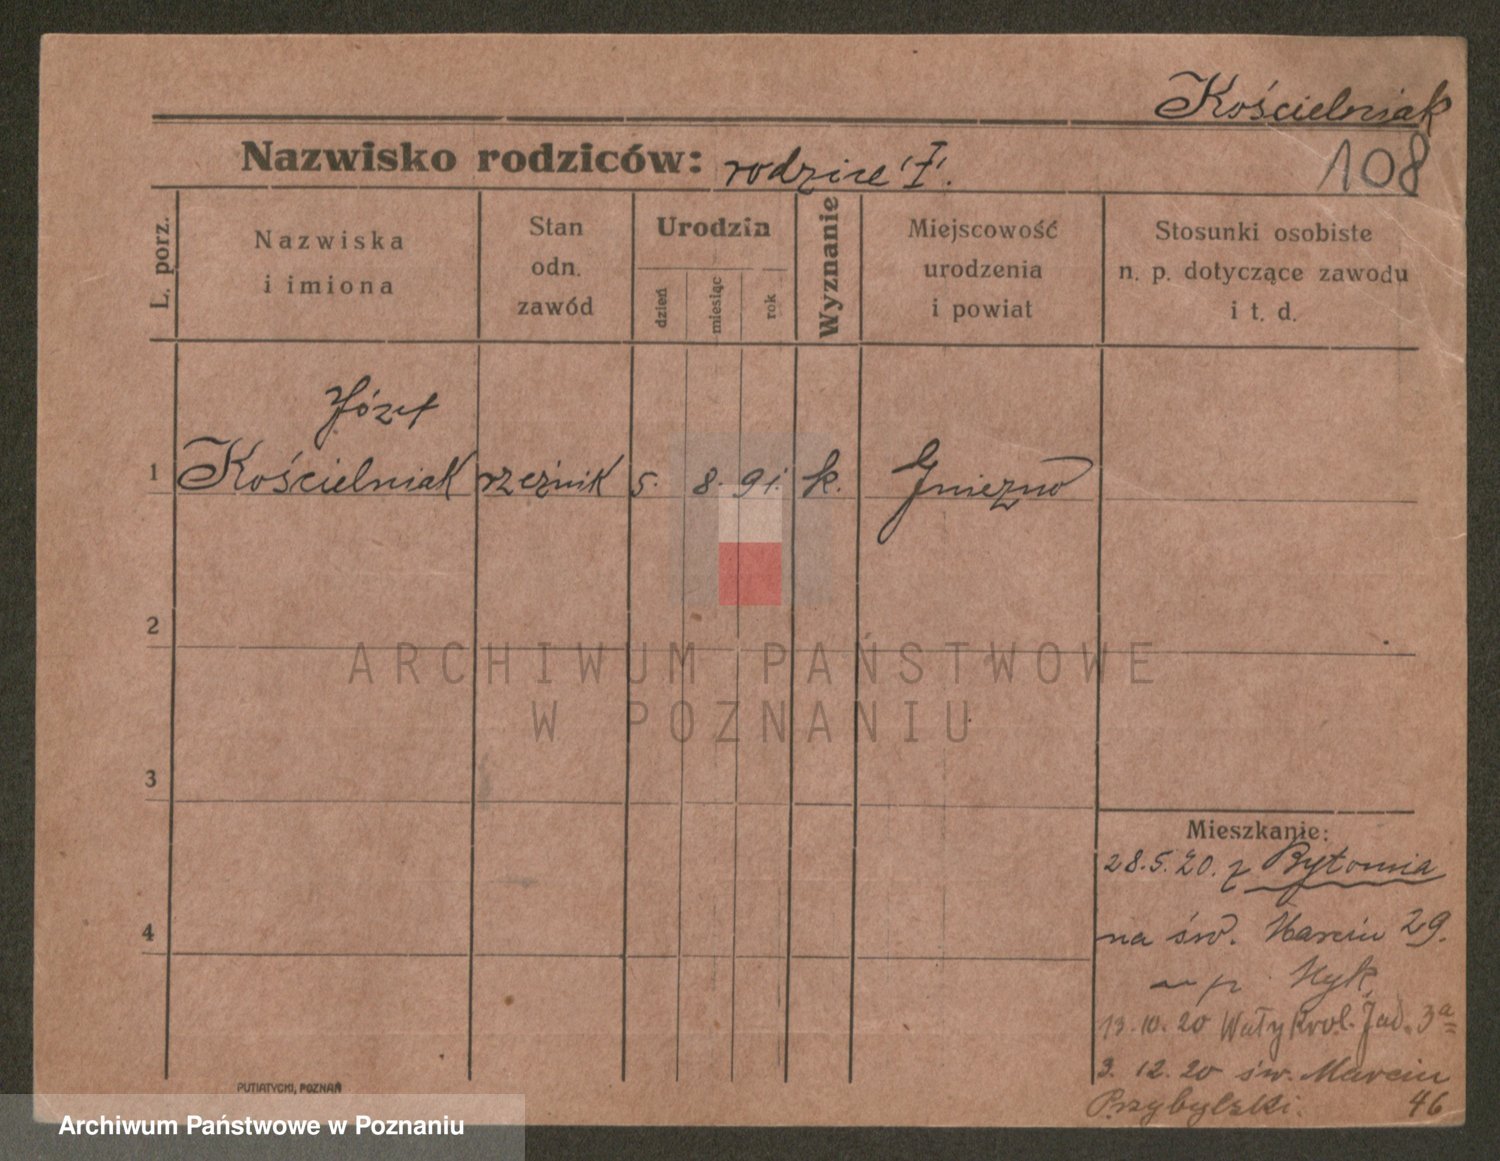 Kościelniak
108
Nazwisko rodziców: rodzice
L. porz.
Nazwiska
i imiona
Stan
odn.
zawód
Urodzin
dzień
miesiąc
rok
Wyznanie
Miejscowość
urodzenia
i powiat
Stosunki osobiste
n. p. dotyczące zawodu
i t. d.
Józef
1 Kościelniak rzeźnik 5. 8. 91. k. Gniezno
2
3
4
ARCHIWUM PAŃSTWOWE
W POZNANIU
Mieszkanie:
28.5.20. z Bytomia
na św. Marcin 29.
p.
13.10.20 Wały Krol. Jad. 3a
3. 12. 20 św. Marcin
Przybylski. 46
PUTIATYCKI, POZNAŃ
Archiwum Państwowe w Poznaniu